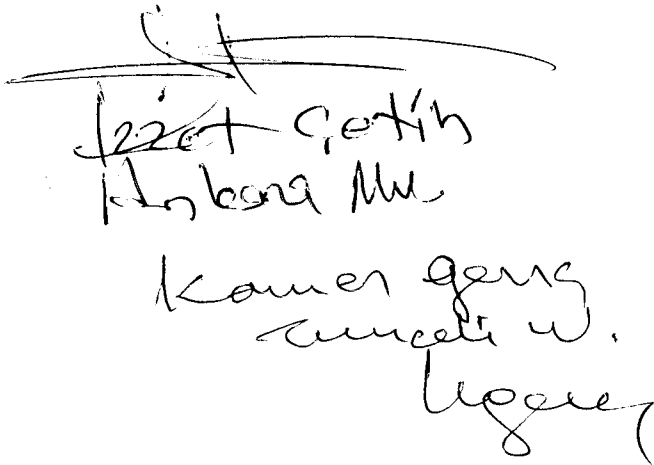 İzzet Çetin
Ankara Mv.
Kamer Genç
Tunceli M.
KGenç